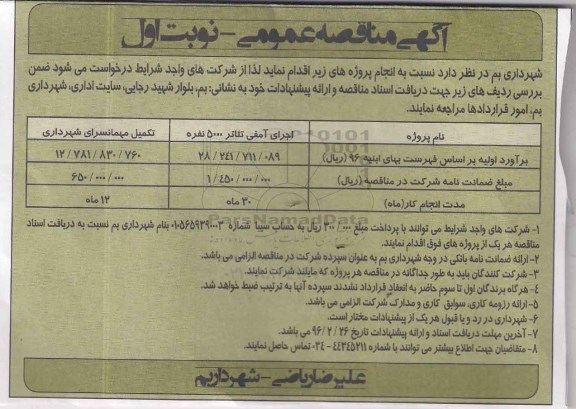 آگهی مناقصه عمومی - نوبت اول
شهرداری بم در نظر دارد نسبت به انجام پروژه های زیر اقدام نماید لذا از شرکت های واجد شرایط درخواست می شود ضمن
بررسی ردیف های زیر جهت دریافت اسناد مناقصه و ارائه پیشنهادات خود به نشانی: بم، بلوار شهید رجایی، سایت اداری، شهرداری
بم، امور قراردادها مراجعه نمایند.
نام پروژه	اجرای آمفی تئاتر ۵۰۰۰ نفره	تکمیل مهمانسرای شهرداری
برآورد اولیه بر اساس فهرست بهای ابنیه ۹۶ (ریال)	۲۸/۲۴۱/۷۱۱/۰۸۹	۱۲/۷۸۱/۸۳۰/۷۶۰
مبلغ ضمانت نامه شرکت در مناقصه (ریال)	۱/۴۵۰/۰۰۰/۰۰۰	۶۵۰/۰۰۰/۰۰۰
مدت انجام کار(ماه)	۲۰ ماه	۱۲ ماه
۱- شرکت های واجد شرایط می توانند با پرداخت مبلغ ۳۰۰/۰۰۰ ریال به حساب سیبا شماره ۰۱۰۵۶۵۹۳۹۰۰۰۳ بنام شهرداری بم نسبت به دریافت اسناد
مناقصه هر یک از پروژه های فوق اقدام نمایند.
۲- ارائه ضمانت نامه بانکی در وجه شهرداری بم به عنوان سپرده شرکت در مناقصه الزامی می باشد.
۳- شرکت کنندگان باید به طور جداگانه در مناقصه هر پروژه که مایلند شرکت نمایند.
۴- هرگاه برندگان اول تا سوم حاضر به انعقاد قرارداد نشدند سپرده آنها به ترتیب ضبط خواهد شد.
۵- ارائه رزومه کاری، سوابق کاری و مدارک شرکت الزامی می باشد.
۶- شهرداری در رد و یا قبول هر یک از پیشنهادات مختار است.
۷- آخرین مهلت دریافت اسناد و ارائه پیشنهادات تاریخ ۹۶/۲/۲۶ می باشد.
۸- متقاضیان جهت اطلاع بیشتر می توانند با شماره ۴۴۳۴۵۲۱۱-۰۳۴ تماس حاصل نمایند.
علیرضا ریاضی - شهردار بم